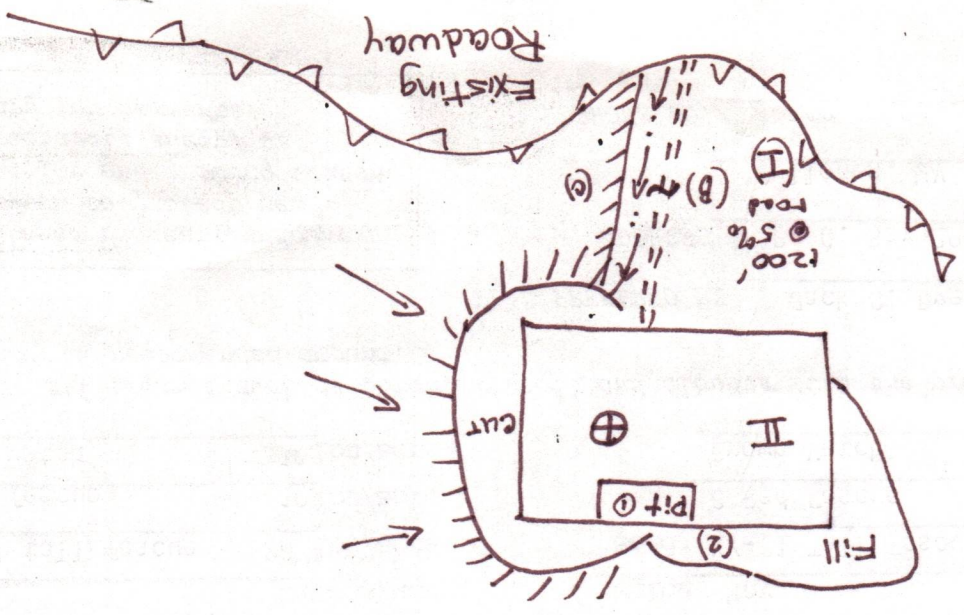 Fill
(2)
Pit ①
II
cut
±200'
@ 5%
road
(I)
(B)
(C)
Existing
Roadway